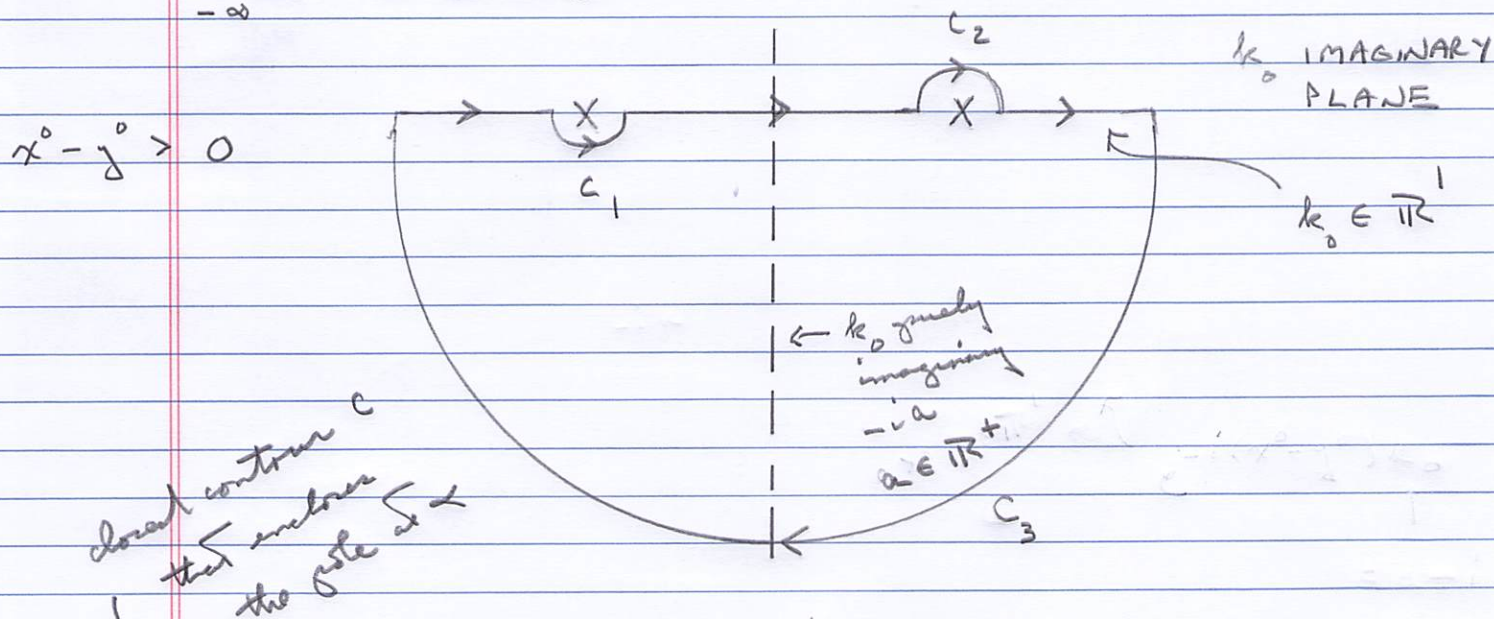 - ∞
C2
k0 IMAGINARY
PLANE
x⁰ - y⁰ > 0
X
X
C1
k0 ∈ ℝ¹
← k0 purely
imaginary
-ia
a ∈ ℝ⁺
closed contour C
that encloses
the pole at α
C3